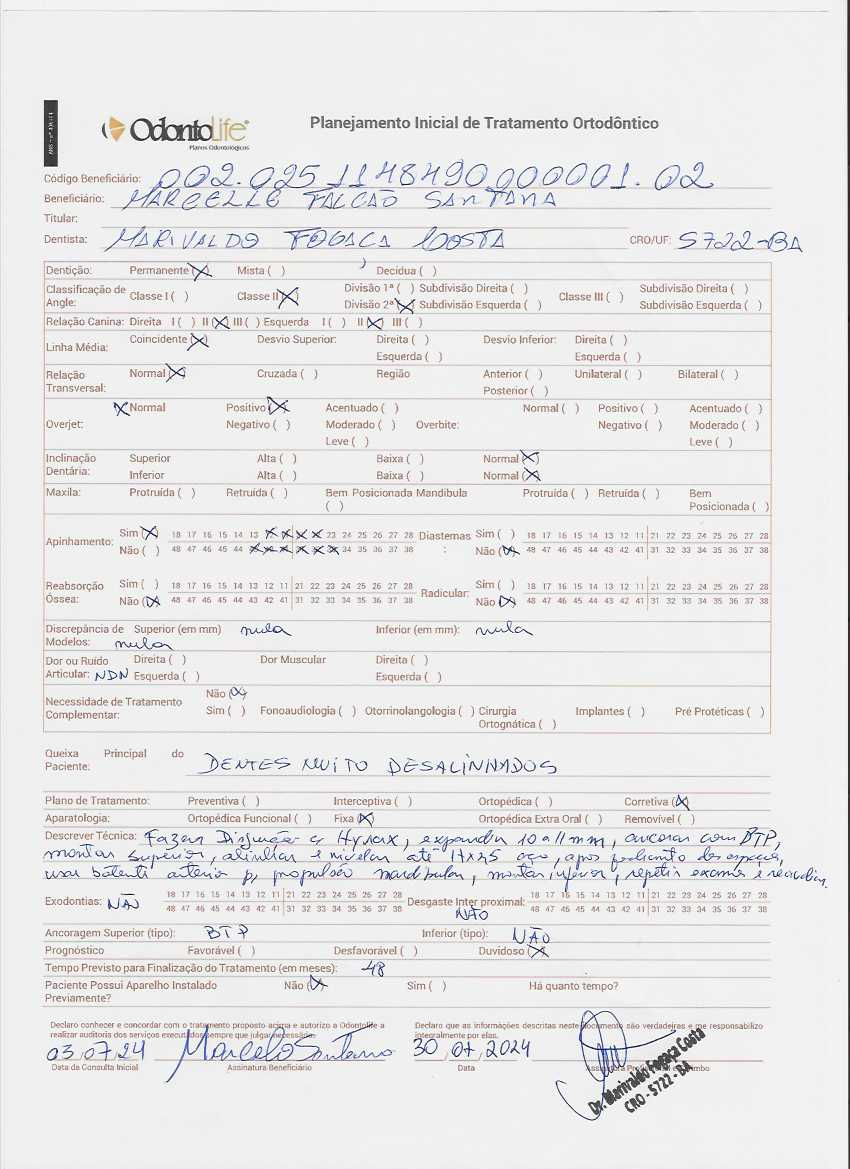 OdontoLife
Planos Odontológicos
Planejamento Inicial de Tratamento Ortodôntico
Código Beneficiário: 002.025 1148490000001.02
Beneficiário: MARCELLE FALCÃO SANTANA
Titular:
Dentista: MARIVALDO FOGAÇA COSTA CRO/UF: 5722-BA
Dentição: Permanente (X) Mista ( ) Decídua ( )
Classificação de Angle: Classe I ( ) Classe II (X) Divisão 1ª ( ) Subdivisão Direita ( ) Classe III ( ) Subdivisão Direita ( )
Divisão 2ª (X) Subdivisão Esquerda ( ) Subdivisão Esquerda ( )
Relação Canina: Direita I ( ) II (X) III ( ) Esquerda I ( ) II (X) III ( )
Linha Média: Coincidente (X) Desvio Superior: Direita ( ) Desvio Inferior: Direita ( )
Esquerda ( ) Esquerda ( )
Relação Transversal: Normal (X) Cruzada ( ) Região Anterior ( ) Unilateral ( ) Bilateral ( )
Posterior ( )
X Normal Positivo (X) Acentuado ( ) Normal ( ) Positivo ( ) Acentuado ( )
Overjet: Negativo ( ) Moderado ( ) Overbite: Negativo ( ) Moderado ( )
Leve ( ) Leve ( )
Inclinação Dentária: Superior Alta ( ) Baixa ( ) Normal (X)
Inferior Alta ( ) Baixa ( ) Normal (X)
Maxila: Protruída ( ) Retruída ( ) Bem Posicionada ( ) Mandíbula Protruída ( ) Retruída ( ) Bem Posicionada ( )
Apinhamento: Sim (X) 18 17 16 15 14 13 X X X X 23 24 25 26 27 28 Diastemas: Sim ( ) 18 17 16 15 14 13 12 11 21 22 23 24 25 26 27 28
Não ( ) 48 47 46 45 44 X X X X X X 34 35 36 37 38 Não (X) 48 47 46 45 44 43 42 41 31 32 33 34 35 36 37 38
Reabsorção Óssea: Sim ( ) 18 17 16 15 14 13 12 11 21 22 23 24 25 26 27 28 Radicular: Sim ( ) 18 17 16 15 14 13 12 11 21 22 23 24 25 26 27 28
Não (X) 48 47 46 45 44 43 42 41 31 32 33 34 35 36 37 38 Não (X) 48 47 46 45 44 43 42 41 31 32 33 34 35 36 37 38
Discrepância de Modelos: nula Superior (em mm) nula Inferior (em mm): nula
Dor ou Ruído Articular: NDN Direita ( ) Dor Muscular Direita ( )
Esquerda ( ) Esquerda ( )
Necessidade de Tratamento Complementar: Não (X)
Sim ( ) Fonoaudiologia ( ) Otorrinolangologia ( ) Cirurgia Ortognática ( ) Implantes ( ) Pré Protéticas ( )
Queixa Principal do Paciente: DENTES MUITO DESALINHADOS
Plano de Tratamento: Preventiva ( ) Interceptiva ( ) Ortopédica ( ) Corretiva (X)
Aparatologia: Ortopédica Funcional ( ) Fixa (X) Ortopédica Extra Oral ( ) Removível ( )
Descrever Técnica: Fazer Disjunção c/ Hyrax, expandir 10 a 11 mm, ancorar com BTP,
montar superior, alinhar e nivelar até 17x25 aço, após fechamento dos espaços,
usar batente anterior p/ propulsão mandibular, montar inferior, repetir exames e reavaliar.
Exodontias: NÃO 18 17 16 15 14 13 12 11 21 22 23 24 25 26 27 28 Desgaste Inter proximal: NÃO 18 17 16 15 14 13 12 11 21 22 23 24 25 26 27 28
48 47 46 45 44 43 42 41 31 32 33 34 35 36 37 38 48 47 46 45 44 43 42 41 31 32 33 34 35 36 37 38
Ancoragem Superior (tipo): BTP Inferior (tipo): NÃO
Prognóstico Favorável ( ) Desfavorável ( ) Duvidoso (X)
Tempo Previsto para Finalização do Tratamento (em meses): 48
Paciente Possui Aparelho Instalado Previamente? Não (X) Sim ( ) Há quanto tempo?
Declaro conhecer e concordar com o tratamento proposto acima e autorizo a Odontolife a
realizar auditoria dos serviços executados sempre que julgar necessário.
Declaro que as informações descritas neste documento são verdadeiras e me responsabilizo
integralmente por elas.
03/07/24 Marcelo Santana 30/07/2024
Data da Consulta Inicial Assinatura Beneficiário Data
Dr. Marivaldo Fogaça Costa
CRO - 5722 - BA